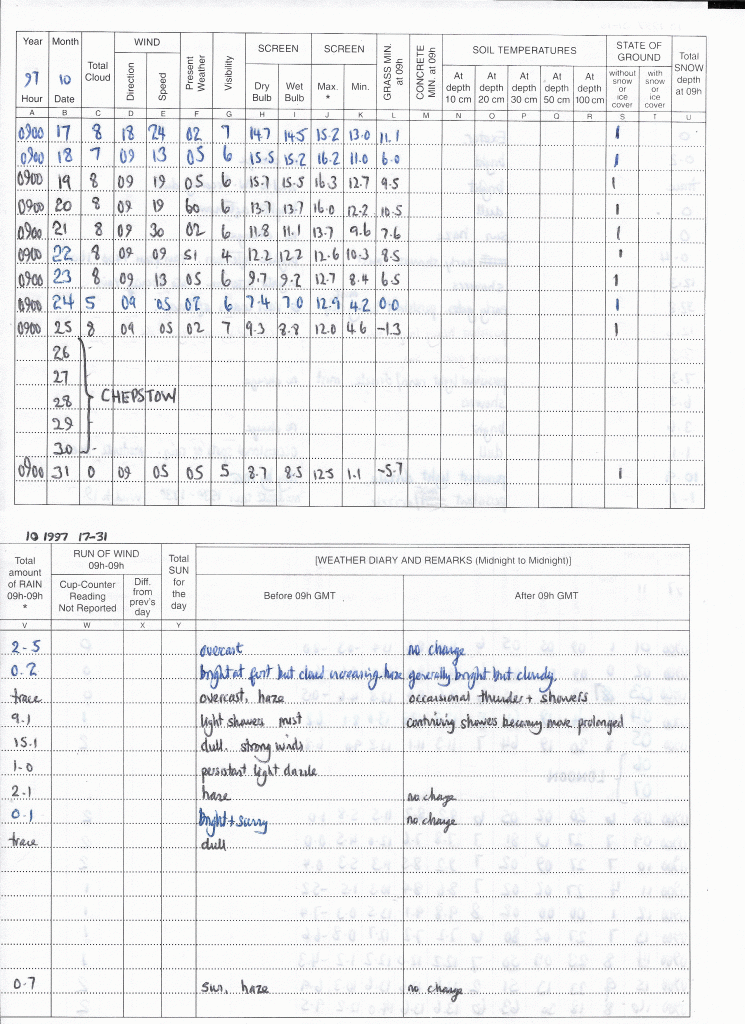 Year Month Total Cloud WIND Present Weather Visibility SCREEN SCREEN GRASS MIN. at 09h CONCRETE MIN. at 09h SOIL TEMPERATURES STATE OF GROUND Total SNOW depth at 09h
97 10 Direction Speed Dry Bulb Wet Bulb Max. * Min. At depth 10 cm At depth 20 cm At depth 30 cm At depth 50 cm At depth 100 cm without snow or ice cover with snow or ice cover
Hour Date
A B C D E F G H I J K L M N O P Q R S T U
0900 17 8 18 24 02 7 14.7 14.5 15.2 13.0 11.1 1
0900 18 7 09 13 05 6 15.5 15.2 16.2 11.0 6.0 1
0900 19 8 09 19 05 6 15.7 15.5 16.3 12.7 9.5 1
0900 20 8 09 19 60 6 13.7 13.7 16.0 12.2 10.5 1
0900 21 8 09 30 02 6 11.8 11.1 13.7 9.6 7.6 1
0900 22 8 09 09 51 4 12.2 12.2 12.6 10.3 8.5 1
0900 23 8 09 13 05 6 9.7 9.2 12.7 8.4 6.5 1
0900 24 5 09 05 02 6 7.4 7.0 12.9 4.2 0.0 1
0900 25 8 09 05 02 7 9.3 8.8 12.0 4.6 -1.3 1
26
27
28 CHEPSTOW
29
30
0900 31 0 09 05 05 5 8.7 8.5 12.5 1.1 -5.7 1
10 1997 17-31
Total amount of RAIN 09h-09h * RUN OF WIND 09h-09h Total SUN for the day [WEATHER DIARY AND REMARKS (Midnight to Midnight)]
Cup-Counter Reading Not Reported Diff. from prev's day Before 09h GMT After 09h GMT
V W X Y
2.5 overcast no change
0.2 bright at first but cloud increasing haze generally bright but cloudy.
trace overcast, haze occassional thunder + showers
9.1 light showers mist continuing showers becoming more prolonged
15.1 dull. strong winds
1.0 persistant light drizzle
2.1 haze no change
0.1 bright + sunny no change
trace dull
0.7 sun, haze no change